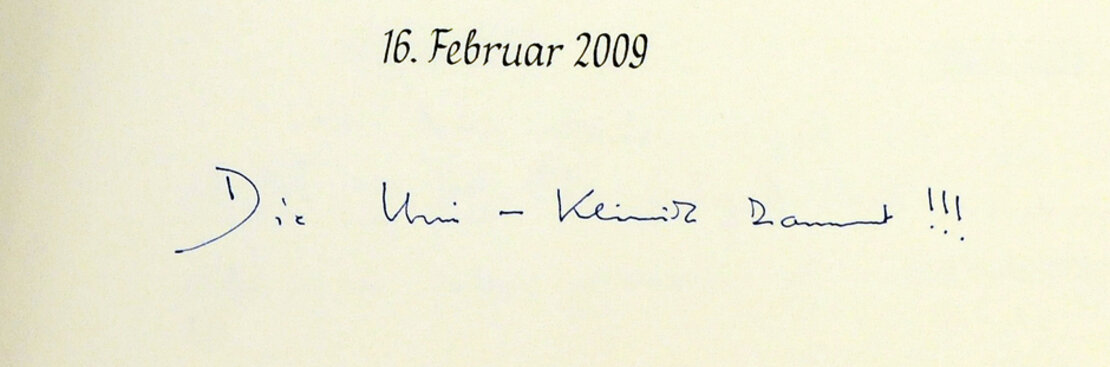 16. Februar 2009
Die Uni - Klinik kommt !!!